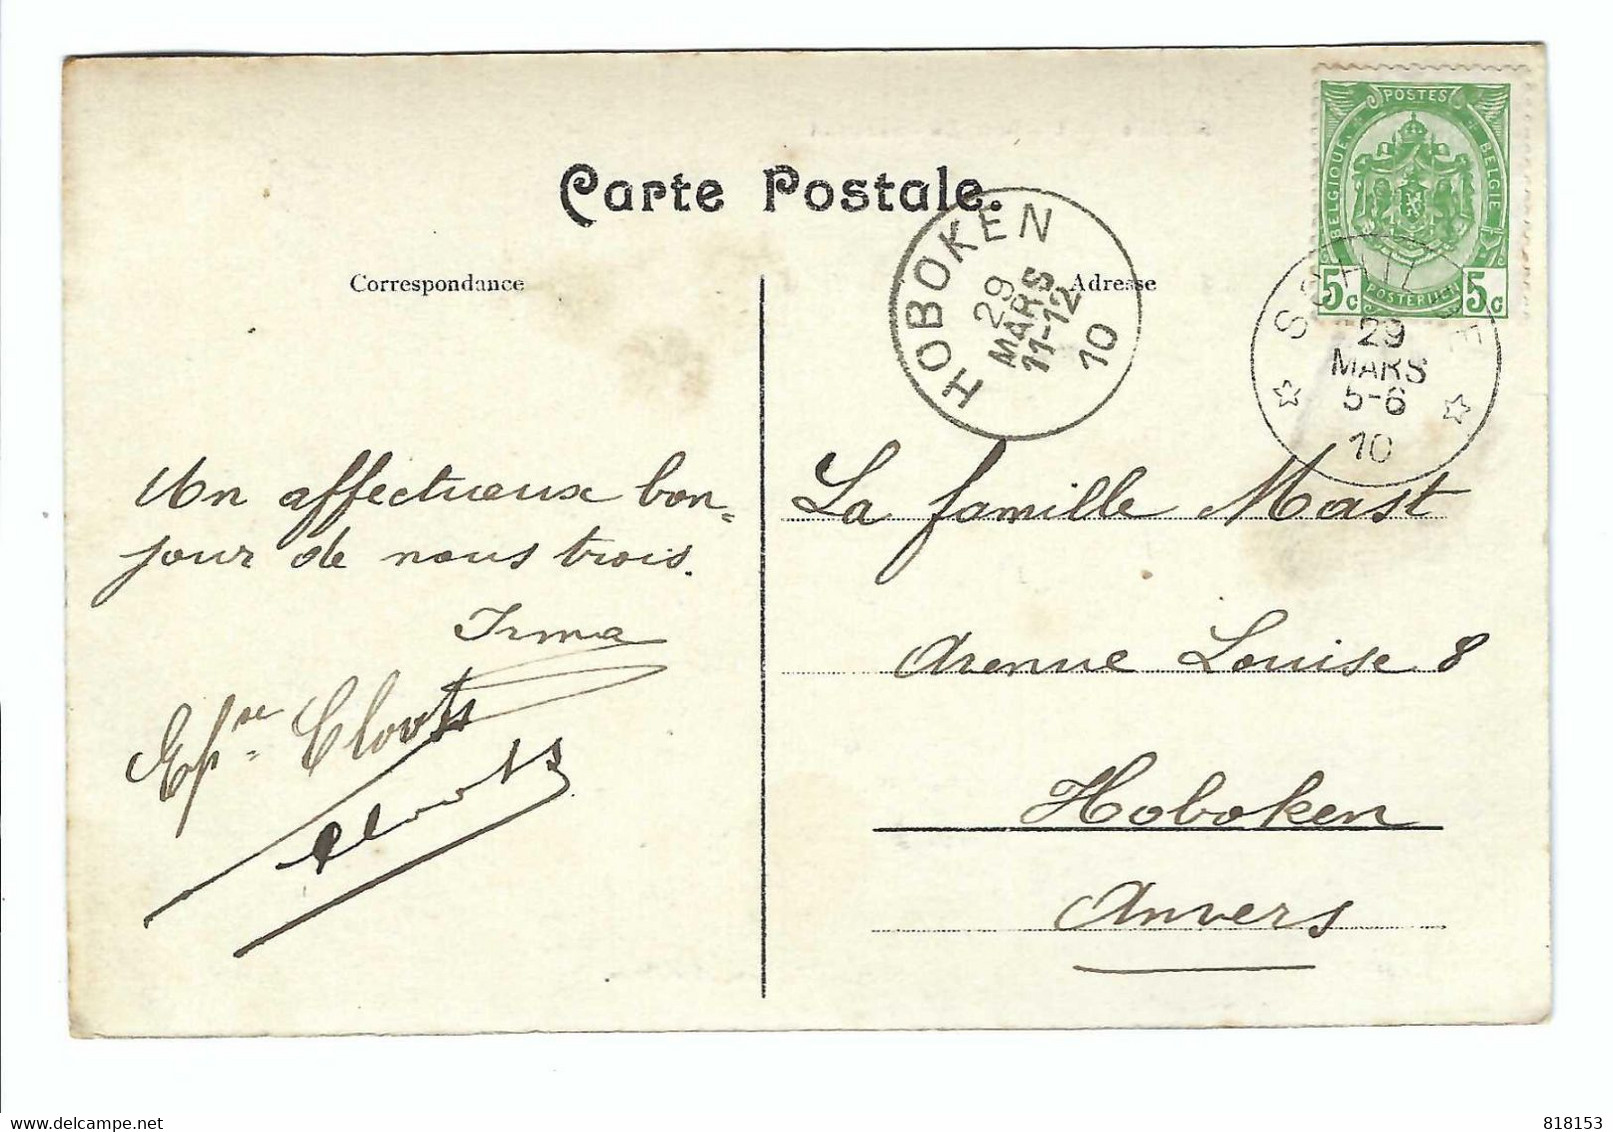 Carte Postale.
Correspondance
Adresse
POSTES
BELGIQUE
BELGIE
POSTERIJEN
5c 5c
HOBOKEN
29
MARS
11-12
10
29
MARS
5-6
10
Un affectueux bon-
jour de nous trois.
Irma
Epse Cloots
Cloots
La famille Mast
Avenue Louise 8
Hoboken
Anvers
818153